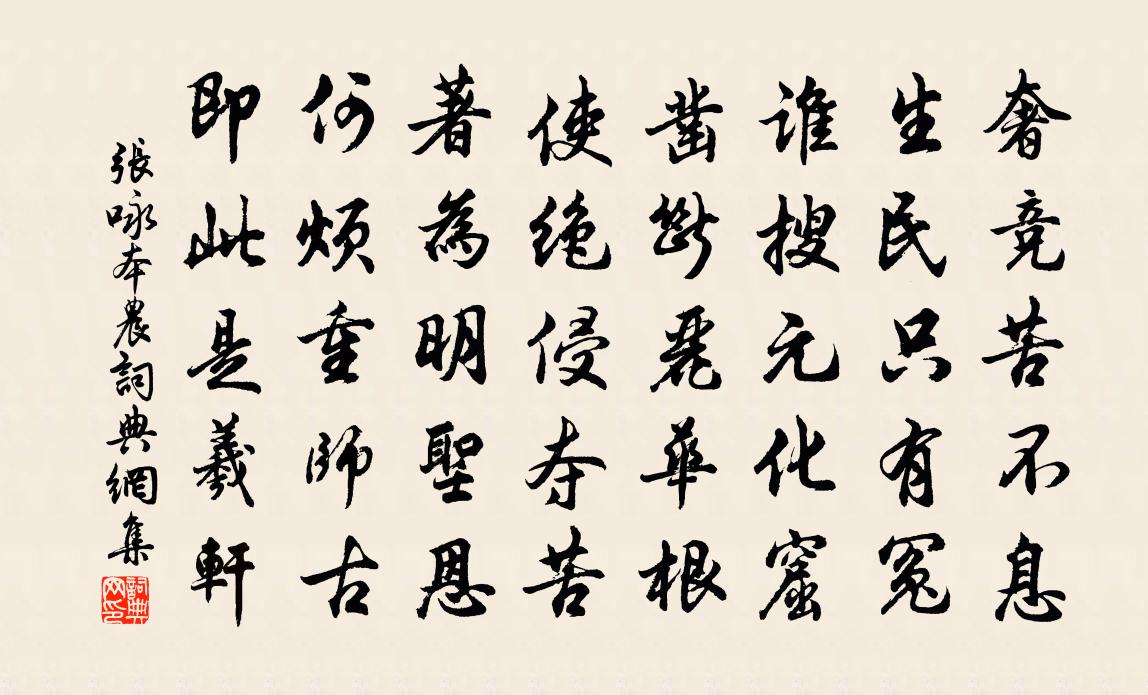 奢竞苦不息
生民只有冤
谁搜元化窟
凿断丽华根
使绝侵夺苦
著為明聖恩
何烦重師古
即此是羲軒
張咏本農詞典網集
詞典网印